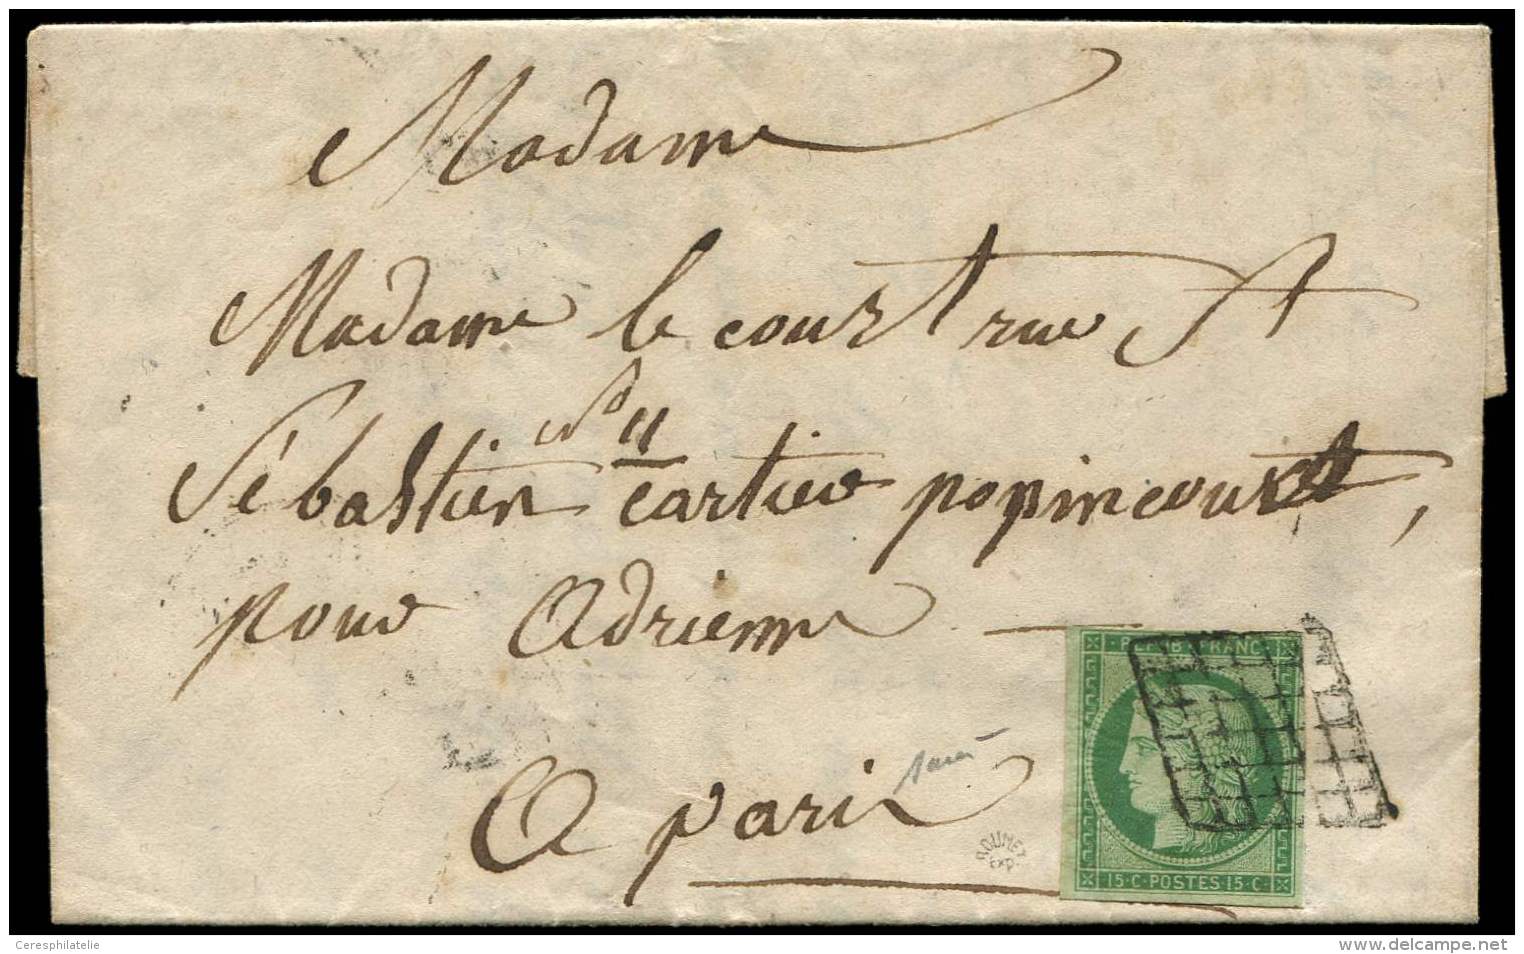 Madame
Madame le court rue St
Sébastien no 11 cartier popincourt,
pour Adrienne
A paris
REPUB FRANC
15·C·POSTES·15·C·
ROUMET
Exp.
Ceresphilatelie
www.delcampe.net